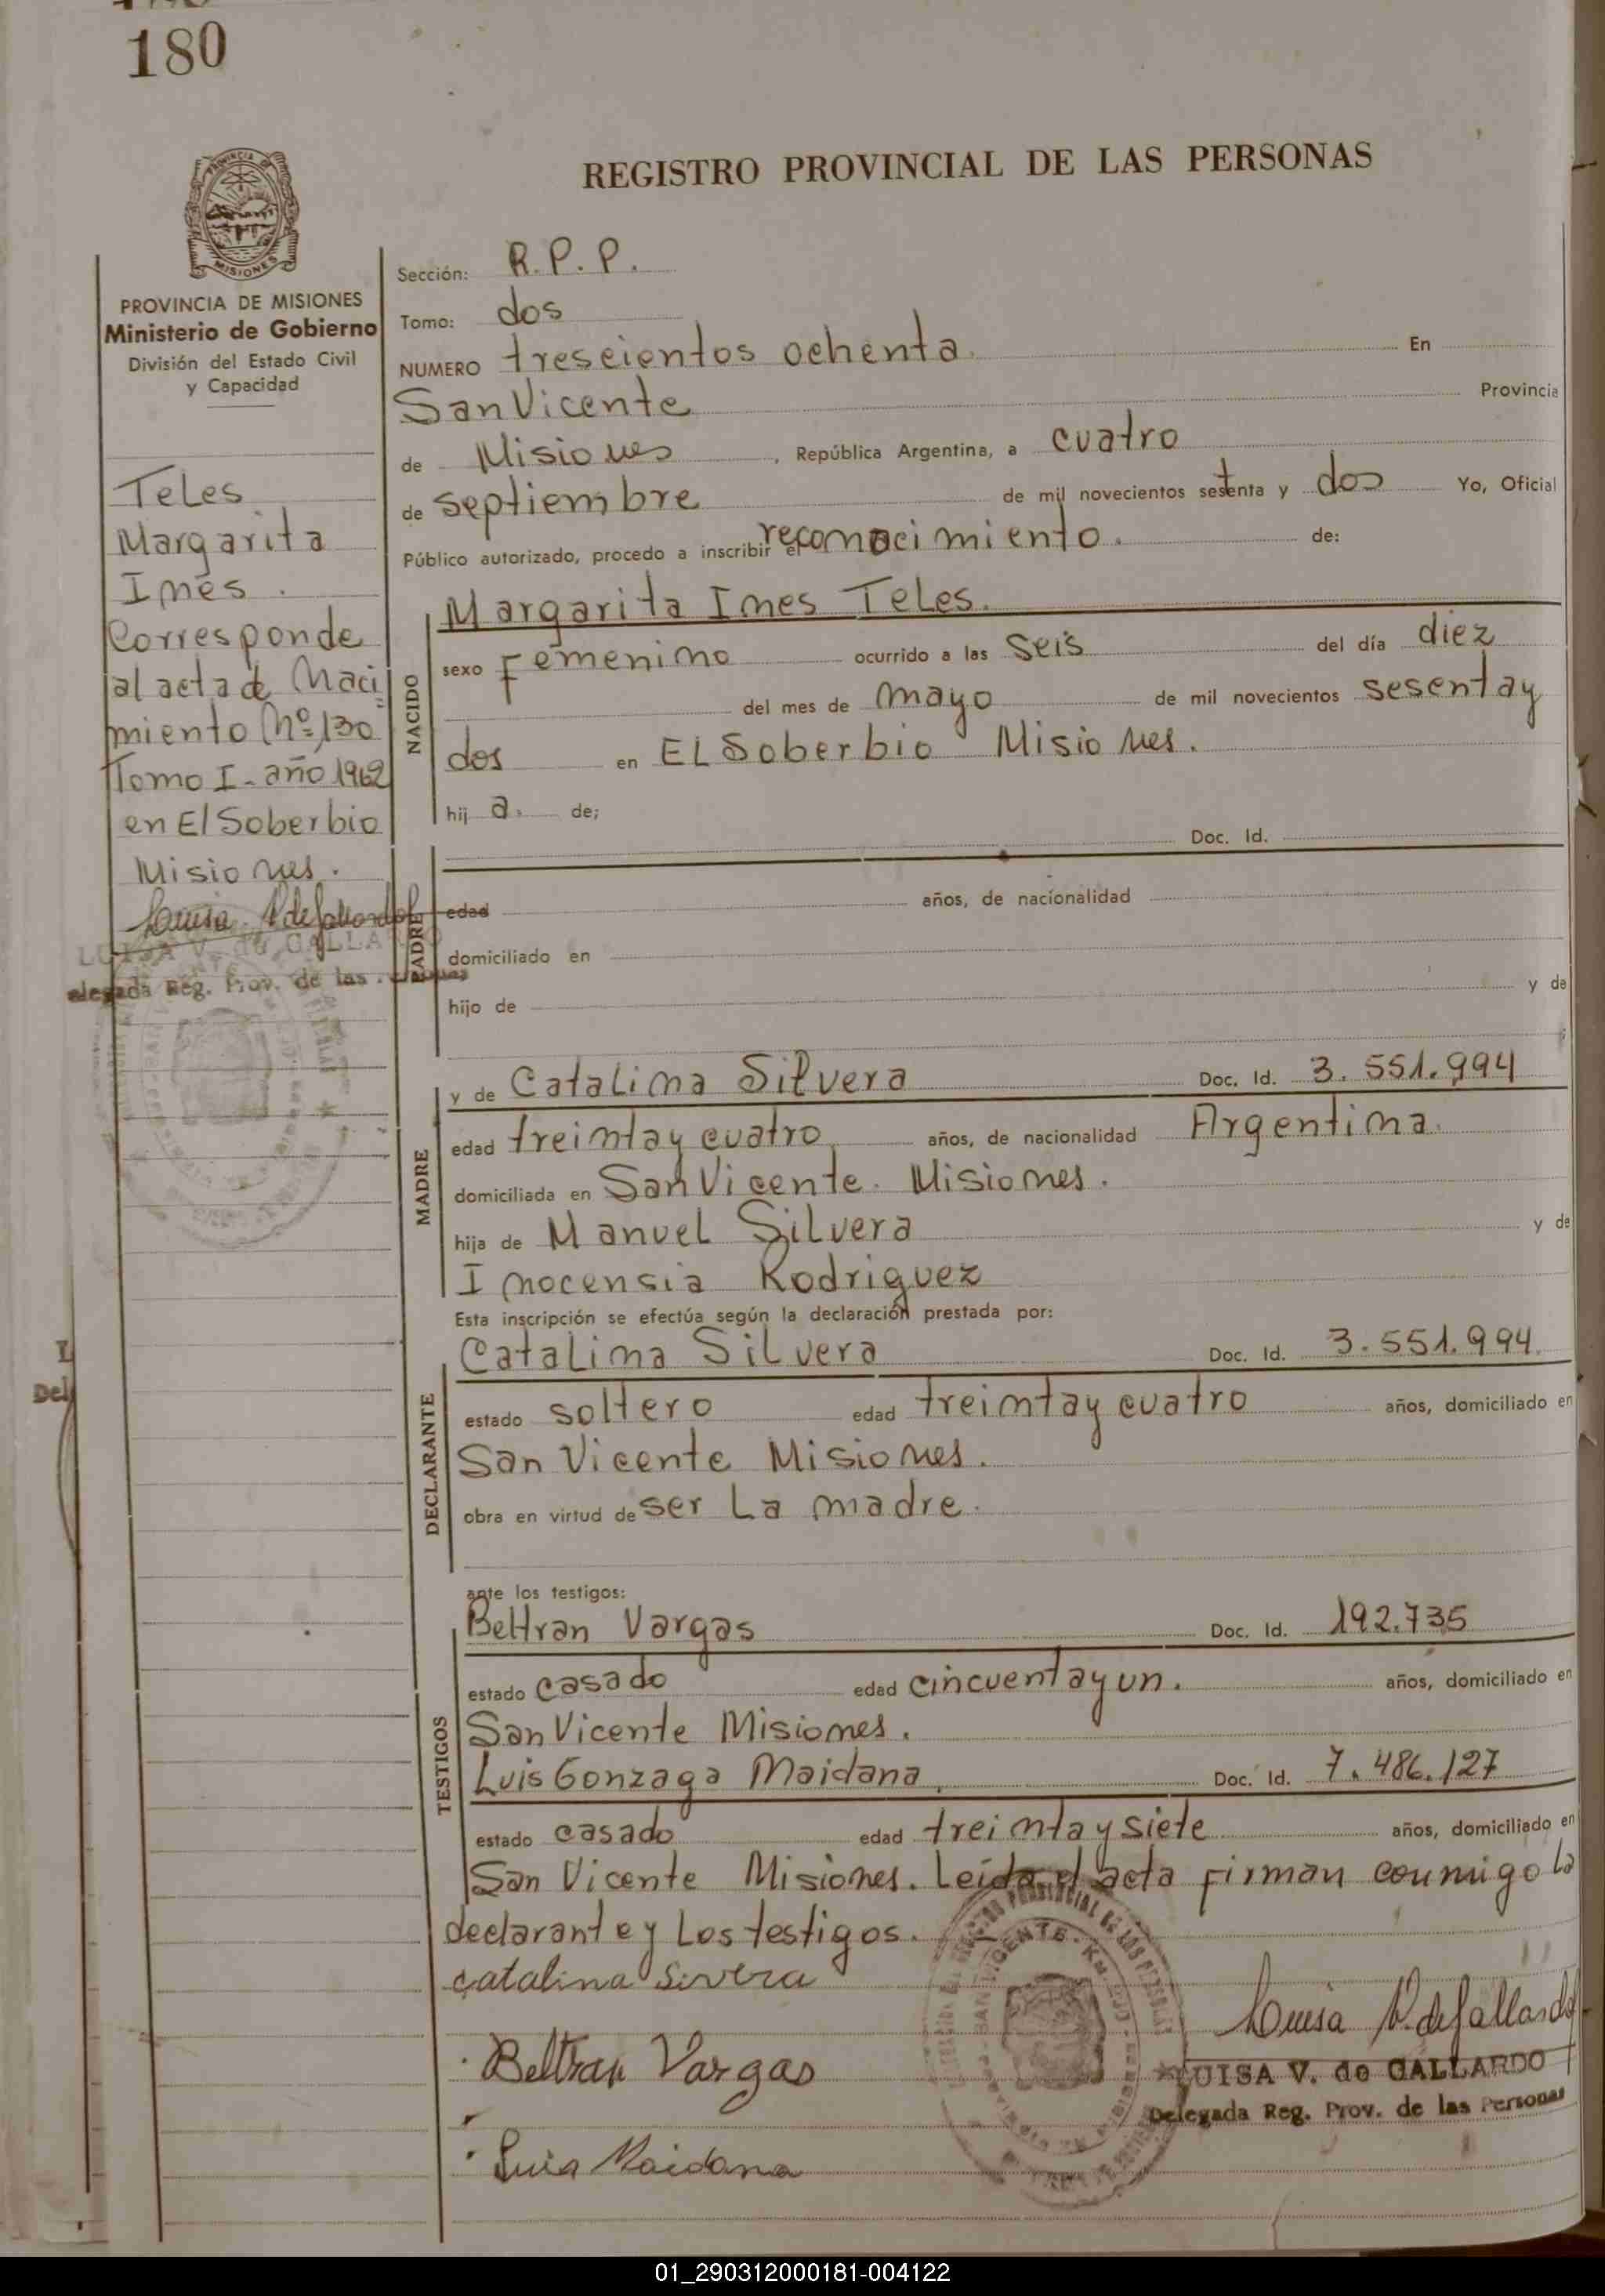 180
REGISTRO PROVINCIAL DE LAS PERSONAS
PROVINCIA DE MISIONES
Ministerio de Gobierno
División del Estado Civil
y Capacidad
Teles
Margarita
Inés.
Corresponde
al acta de Naci
miento Nº 130
Tomo I - año 1962
en El Soberbio
Misiones.
Luisa V. de Gallardo
LUISA V. de GALLARDO
elegada Reg. Prov. de las
Sección: R.P.P.
Tomo: dos
NUMERO trescientos ochenta. En
San Vicente Provincia
de Misiones, República Argentina, a cuatro
de septiembre de mil novecientos setenta y dos Yo, Oficial
Público autorizado, procedo a inscribir el reconocimiento. de:
NACIDO
Margarita Ines Teles.
sexo Femenino ocurrido a las seis del día diez
del mes de mayo de mil novecientos sesentay
dos en El Soberbio Misiones.
hij a. de;
Doc. Id.
PADRE
edad años, de nacionalidad
domiciliado en
hijo de y de
MADRE
y de Catalina Silvera Doc. Id. 3.551.994
edad treintay cuatro años, de nacionalidad Argentina.
domiciliada en San Vicente. Misiones.
hija de Manuel Silvera y de
Inocensia Rodriguez
Esta inscripción se efectúa según la declaración prestada por:
DECLARANTE
Catalina Silvera Doc. Id. 3.551.994.
estado soltero edad treintay cuatro años, domiciliado en
San Vicente Misiones.
obra en virtud de ser La madre.
ante los testigos:
TESTIGOS
Beltran Vargas Doc. Id. 192.735
estado casado edad cincuentay un. años, domiciliado en
San Vicente Misiones.
Luis Gonzaga Maidana. Doc. Id. 7.486.127
estado casado edad treintay siete años, domiciliado en
San Vicente Misiones. Leida el acta firman conmigo la
declarante y Los testigos.
catalina Sivera
Beltran Vargas
Luis Maidana
Luisa V. de Gallardo
LUISA V. de GALLARDO
Delegada Reg. Prov. de las Personas
01_290312000181-004122